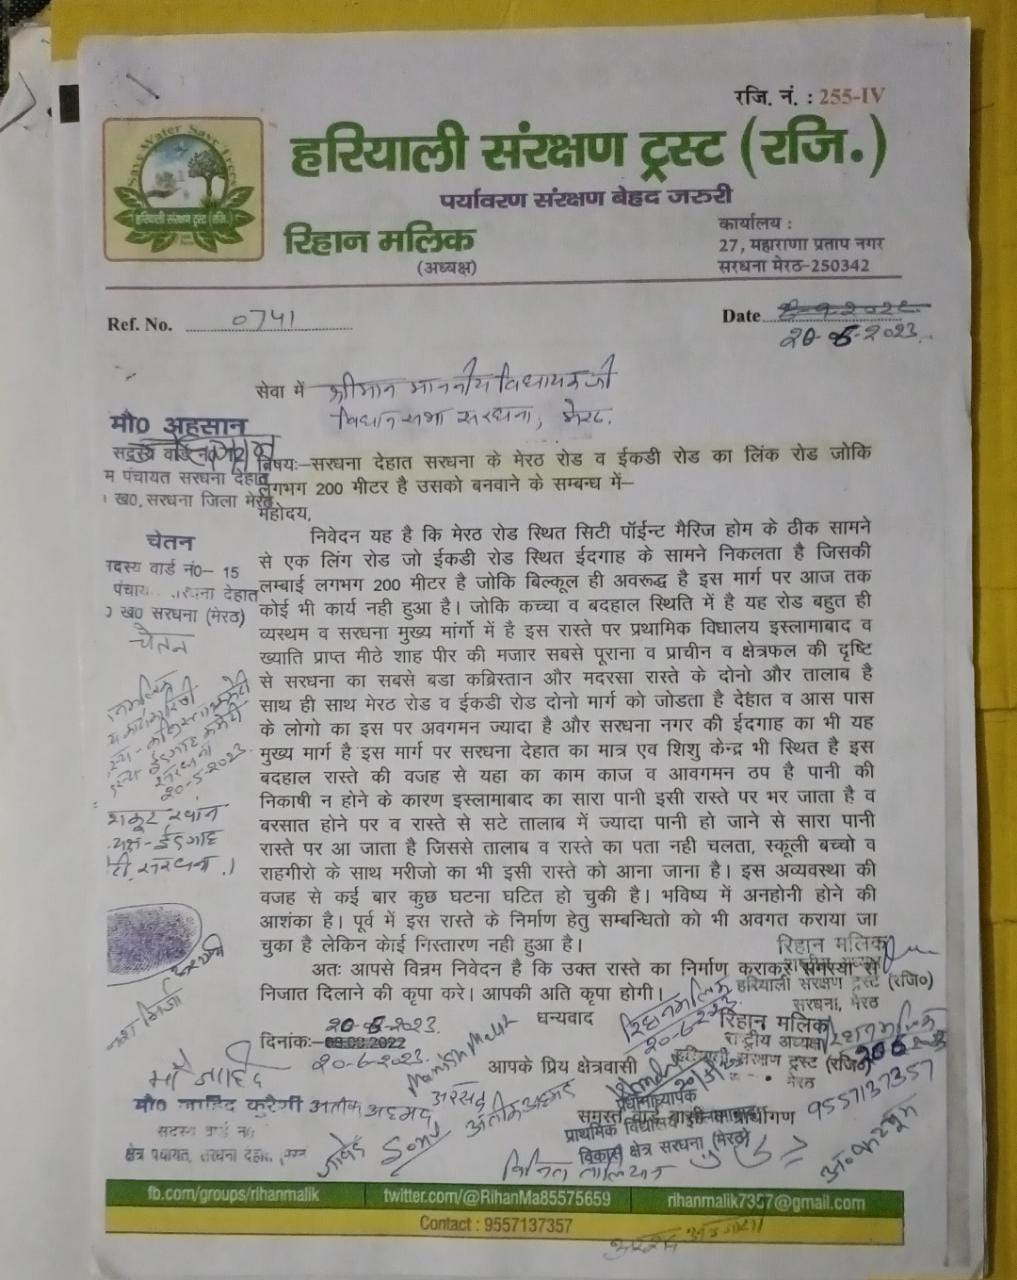 रजि. नं. : 255-IV
Save Water Save Trees
हरियाली संरक्षण ट्रस्ट (रजि.)
हरियाली संरक्षण ट्रस्ट (रजि.)
पर्यावरण संरक्षण बेहद जरुरी
रिहान मलिक
(अध्यक्ष)
कार्यालय :
27, महाराणा प्रताप नगर
सरधना मेरठ-250342
Ref. No. 0741
Date
20-6-2023
सेवा में श्रीमान माननीय विधायक जी
विधान सभा सरधना, मेरठ.
मौ0 अहसान
सदस्य वार्ड
म पंचायत सरधना देहात
ख0, सरधना जिला मेरठ
विषयः–सरधना देहात सरधना के मेरठ रोड व ईकडी रोड का लिंक रोड जोकि
लगभग 200 मीटर है उसको बनवाने के सम्बन्ध में–
महोदय,
निवेदन यह है कि मेरठ रोड स्थित सिटी पॉईन्ट मैरिज होम के ठीक सामने
से एक लिंग रोड जो ईकडी रोड स्थित ईदगाह के सामने निकलता है जिसकी
लम्बाई लगभग 200 मीटर है जोकि बिल्कूल ही अवरूद्ध है इस मार्ग पर आज तक
कोई भी कार्य नही हुआ है। जोकि कच्चा व बदहाल स्थिति में है यह रोड बहुत ही
व्यस्थम व सरधना मुख्य मांर्गो में है इस रास्ते पर प्रथामिक विधालय इस्लामाबाद व
ख्याति प्राप्त मीठे शाह पीर की मजार सबसे पूराना व प्राचीन व क्षेत्रफल की दृष्टि
से सरधना का सबसे बडा कब्रिस्तान और मदरसा रास्ते के दोनो और तालाब है
साथ ही साथ मेरठ रोड व ईकडी रोड दोनो मार्ग को जोडता है देहात व आस पास
के लोगो का इस पर अवगमन ज्यादा है और सरधना नगर की ईदगाह का भी यह
मुख्य मार्ग है इस मार्ग पर सरधना देहात का मात्र एव शिशु केन्द्र भी स्थित है इस
बदहाल रास्ते की वजह से यहा का काम काज व आवगमन ठप है पानी की
निकाषी न होने के कारण इस्लामाबाद का सारा पानी इसी रास्ते पर भर जाता है व
बरसात होने पर व रास्ते से सटे तालाब में ज्यादा पानी हो जाने से सारा पानी
रास्ते पर आ जाता है जिससे तालाब व रास्ते का पता नही चलता, स्कूली बच्चो व
राहगीरो के साथ मरीजो का भी इसी रास्ते को आना जाना है। इस अव्यवस्था की
वजह से कई बार कुछ घटना घटित हो चुकी है। भविष्य में अनहोनी होने की
आशंका है। पूर्व में इस रास्ते के निर्माण हेतु सम्बन्धितो को भी अवगत कराया जा
चुका है लेकिन केाई निस्तारण नही हुआ है।
अतः आपसे विन्रम निवेदन है कि उक्त रास्ते का निर्माण कराकर समस्या से
निजात दिलाने की कृपा करे। आपकी अति कृपा होगी।
चेतन
दस्य वार्ड नं0– 15
पंचाय सरधना देहात
ख0 सरधना (मेरठ)
चेतन
सरधना
20-5-2023
सरधना
रिहान मलिक
राष्ट्रीय अध्यक्ष
हरियाली संरक्षण ट्रस्ट (रजि०)
सरधना, मेरठ
धन्यवाद
रिहान मलिक
20-6-2023
रिहान मलिक
राष्ट्रीय अध्यक्ष
हरियाली संरक्षण ट्रस्ट (रजि०)
मेरठ
9557137357
20-6-2023
दिनांकः–09.09.2022
20-6-2023
आपके प्रिय क्षेत्रवासी
समस्त वार्ड वासी प्रार्थीगण
प्रधानाध्यापक
प्राथमिक विद्यालय इस्लामाबाद
विकास क्षेत्र सरधना (मेरठ)
मौ जाहिद
मौ0 जाहिद कुरैशी
सदस्य वार्ड नं
क्षेत्र पंचायत, सरधना देहात
अतीक अहमद
जावेद
Sonu
fb.com/groups/rihanmalik
twitter.com/@RihanMa85575659
rihanmalik7357@gmail.com
Contact : 9557137357